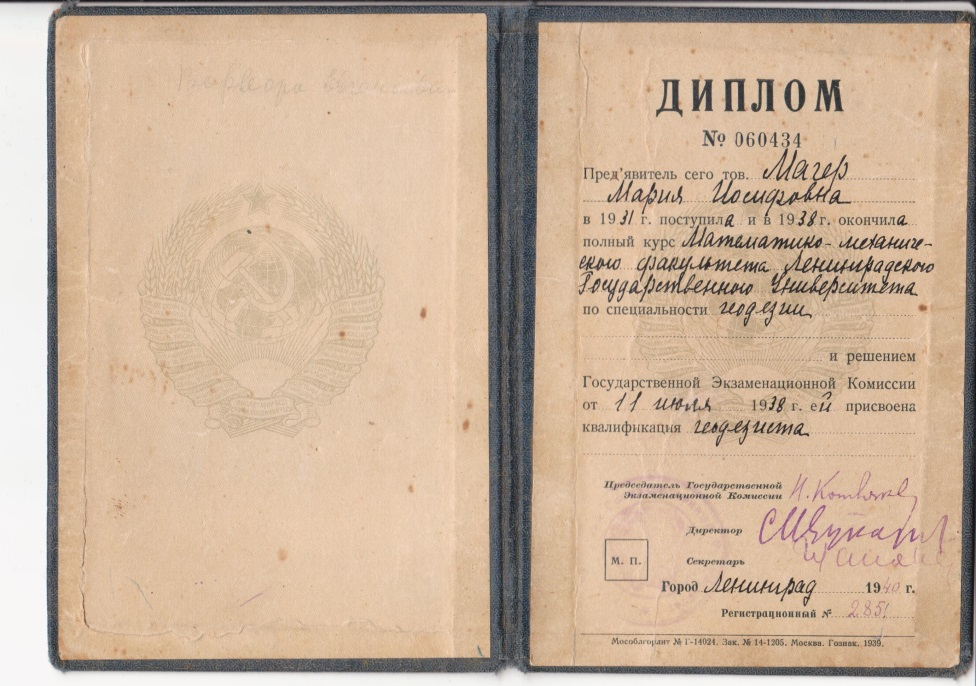 ДИПЛОМ
№ 060434
Пред'явитель сего тов. Магер
Мария Иосифовна
в 1931 г. поступила и в 1938 г. окончила
полный курс Математико-механиче-
ского факультета Ленинградского
Государственного Университета
по специальности геодезии
и решением
Государственной Экзаменационной Комиссии
от 11 июля 1938 г. ей присвоена
квалификация геодезиста
Председатель Государственной
Экзаменационной Комиссии
Директор
М. П.
Секретарь
Город Ленинград 1940 г.
Регистрационный № 2851
Мособлгорлит № Г-14024. Зак. № 14-1205. Москва. Гознак. 1939.